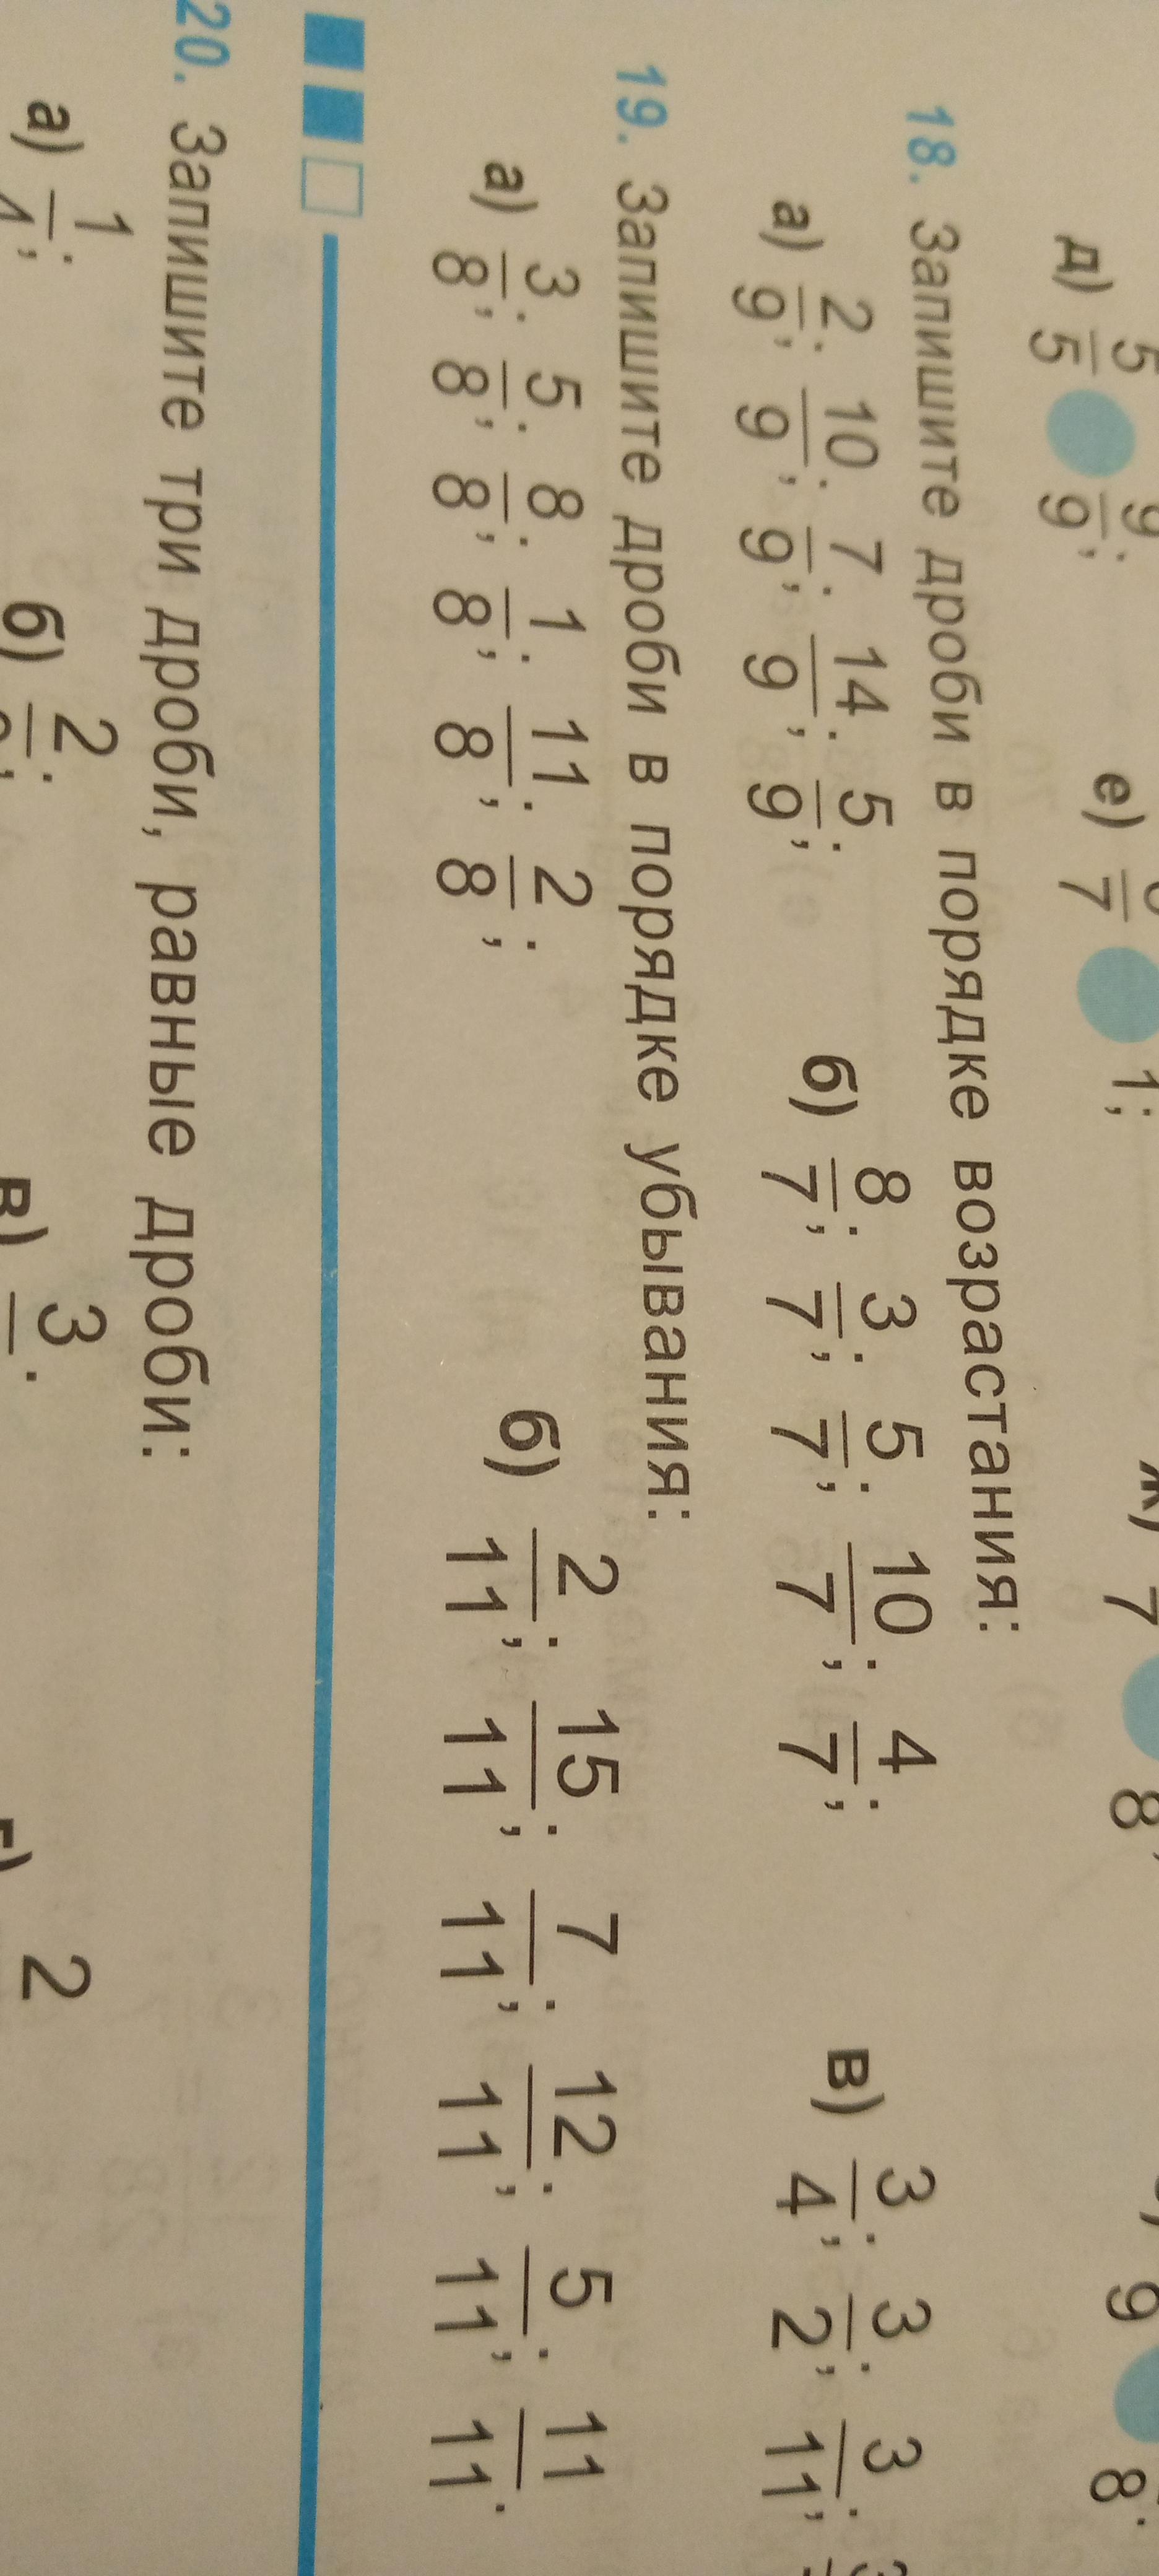 д) 5/5 9/9; е) /7 1; ж) 7 8 9 8.
18. Запишите дроби в порядке возрастания:
а) 2/9; 10/9; 7/9; 14/9; 5/9; б) 8/7; 3/7; 5/7; 10/7; 4/7; в) 3/4; 3/2; 3/11;
19. Запишите дроби в порядке убывания:
а) 3/8; 5/8; 8/8; 1/8; 11/8; 2/8; б) 2/11; 15/11; 7/11; 12/11; 5/11; 11/11.
20. Запишите три дроби, равные дроби:
а) 1/4; б) 2 в) 3 2